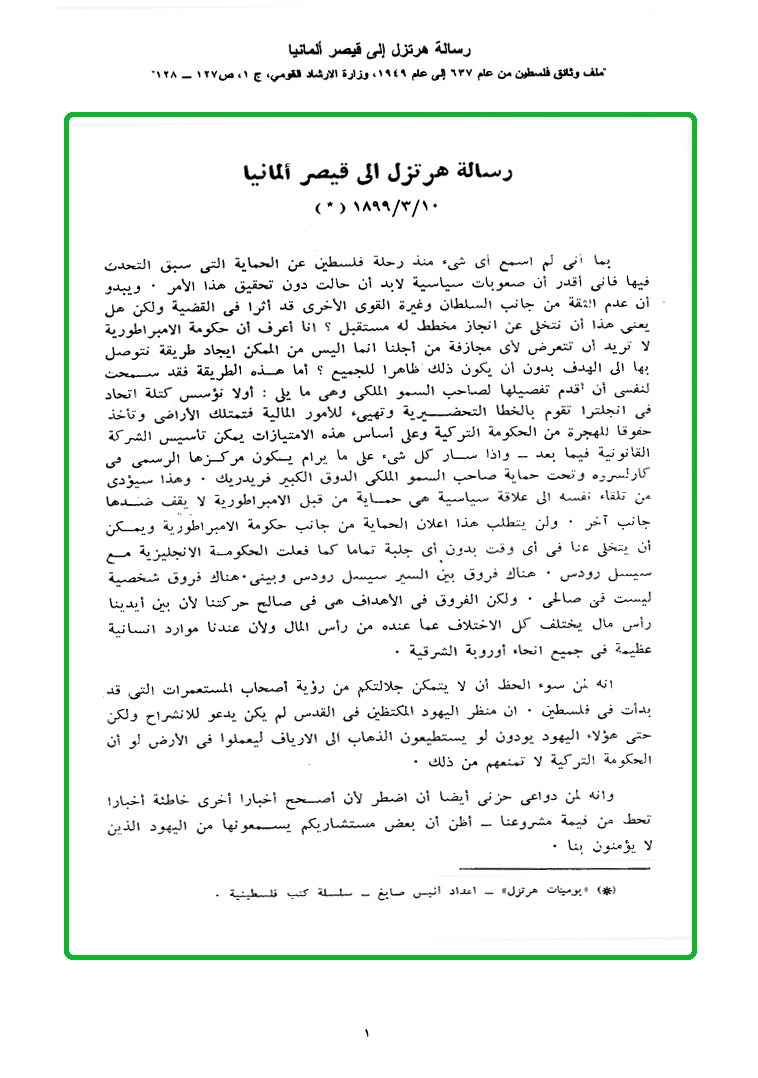 رسالة هرتزل إلى قيصر ألمانيا
"ملف وثائق فلسطين من عام ٦٣٧ إلى عام ١٩٤٩، وزارة الارشاد القومي، ج ١، ص١٢٧ ــ ١٢٨"
رسالة هرتزل الى قيصر ألمانيا
١٨٩٩/٣/١٠ (*)
بما أنى لم اسمع أى شىء منذ رحلة فلسطين عن الحماية التى سبق التحدث
فيها فانى أقدر أن صعوبات سياسية لابد أن حالت دون تحقيق هذا الأمر ٠ ويبدو
أن عدم الثقة من جانب السلطان وغيرة القوى الأخرى قد أثرا فى القضية ولكن هل
يعنى هذا أن نتخلى عن انجاز مخطط له مستقبل ؟ انا أعرف أن حكومة الامبراطورية
لا تريد أن تتعرض لأى مجازفة من أجلنا انما اليس من الممكن ايجاد طريقة نتوصل
بها الى الهدف بدون أن يكون ذلك ظاهرا للجميع ؟ أما هـذه الطريقة فقد سـمحت
لنفسى أن أقدم تفصيلها لصاحب السمو الملكى وهى ما يلى : أولا نؤسس كتلة اتحاد
فى انجلترا تقوم بالخطا التحضـيرية وتهيىء للأمور المالية فتمتلك الأراضى وتأخذ
حقوقا للهجرة من الحكومة التركية وعلى أساس هذه الامتيازات يمكن تأسيس الشركة
القانونية فيما بعد ــ واذا سـار كل شىء على ما يرام يـكون مركـزها الرسمى فى
كارلسرره وتحت حماية صاحب السمو الملكى الدوق الكبير فريدريك ٠ وهذا سيؤدى
من تلقاء نفسه الى علاقة سياسية هى حمـاية من قبل الامبراطورية لا يقف ضـدها
جانب آخر ٠ ولن يتطلب هذا اعلان الحماية من جانب حكومة الامبراطورية ويمـكن
أن يتخلى عنا فى أى وقت بدون أى جلبة تماما كما فعلت الحكومـة الانجليزية مـع
سيسل رودس ٠ هناك فروق بين السير سيسل رودس وبينى٠هناك فروق شخصية
ليست فى صالحى ٠ ولكن الفروق فى الأهداف هى فى صالح حركتنا لأن بين أيدينا
رأس مال يختلف كل الاختلاف عما عنده من رأس المال ولأن عندنا موارد انسانية
عظيمة فى جميع انحاء أوروبة الشرقية ٠
انه لمن سوء الحظ أن لا يتمكن جلالتكم من رؤية أصحاب المستعمرات التى قد
بدأت فى فلسطين ٠ ان منظر اليهود المكتظين فى القدس لم يكن يدعو للانشراح ولكن
حتى هؤلاء اليهود يودون لو يستطيعون الذهاب الى الارياف ليعملوا فى الأرض لو أن
الحكومة التركية لا تمنعهم من ذلك ٠
وانه لمن دواعى حزنى أيضا أن اضطر لأن أصـحح أخبارا أخرى خاطئة أخبارا
تحط من قيمة مشروعنا ــ أظن أن بعض مستشاريكم يسـمعونها من اليهود الذين
لا يؤمنون بنا ٠
(*) «يوميات هرتزل» ــ اعداد أنيس صايغ ــ سلسلة كتب فلسطينية ٠
١